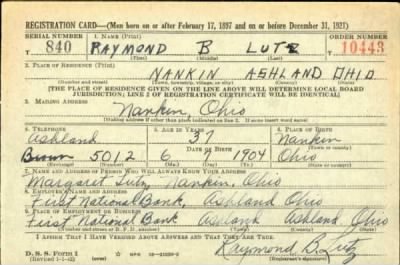 REGISTRATION CARD—(Men born on or after February 17, 1897 and on or before December 31, 1921)
SERIAL NUMBER 1. NAME (Print) ORDER NUMBER
T 840 RAYMOND B LUTZ T 10443
(First) (Middle) (Last)
2. PLACE OF RESIDENCE (Print)
NANKIN ASHLAND OHIO
(Number and street) (Town, township, village, or city) (County) (State)
[THE PLACE OF RESIDENCE GIVEN ON THE LINE ABOVE WILL DETERMINE LOCAL BOARD
JURISDICTION; LINE 2 OF REGISTRATION CERTIFICATE WILL BE IDENTICAL]
3. MAILING ADDRESS
Nankin, Ohio
[Mailing address if other than place indicated on line 2. If same insert word same]
4. TELEPHONE 5. AGE IN YEARS 6. PLACE OF BIRTH
Ashland 37 Nankin
DATE OF BIRTH
5012 6 1904 Ohio
7. NAME AND ADDRESS OF PERSON WHO WILL ALWAYS KNOW YOUR ADDRESS
Margaret Lutz, Nankin, Ohio
8. EMPLOYER'S NAME AND ADDRESS
First National Bank, Ashland Ohio
9. PLACE OF EMPLOYMENT OR BUSINESS
First National Bank Ashland Ashland Ohio
(Number and street or R. F. D. number) (Town) (County) (State)
I AFFIRM THAT I HAVE VERIFIED ABOVE ANSWERS AND THAT THEY ARE TRUE.
Raymond B. Lutz
D. S. S. Form 1
(Revised 1-1-42) (over) GPO